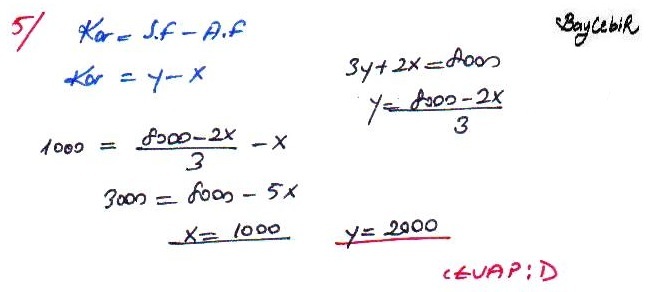 5/ Kar = S.f - A.f
BayCebiR
Kar = y - x
3y + 2x = 8000
y = 8000 - 2x / 3
1000 = 8000 - 2x / 3 - x
3000 = 8000 - 5x
x = 1000
y = 2000
CEVAP: D